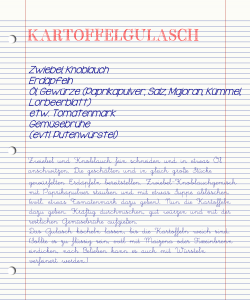 KARTOFFELGULASCH
Zwiebel, Knoblauch
Erdäpfeln
Öl, Gewürze (Paprikapulver, Salz, Majoran, Kümmel,
Lorbeerblatt)
etw. Tomatenmark
Gemüsebrühe
(evtl. Putenwürstel)
Zwiebel und Knoblauch fein schneiden und in etwas Öl
anschwitzen. Die geschälten und in gleich große Stücke
gewürfelten Erdäpfeln bereitstellen. Zwiebel-Knoblauchgemisch
mit Paprikapulver stauben und mit etwas Suppe ablöschen,
evtl. etwas Tomatenmark dazu geben! Nun die Kartoffeln
dazu geben. Kräftig durchmischen, gut würzen und mit der
restlichen Gemüsebrühe aufgießen.
Das Gulasch köcheln lassen, bis die Kartoffeln weich sind.
Sollte es zu flüssig sein, evtl. mit Maizena oder
eindicken, nach Belieben kann es auch mit Würsteln
verfeinert werden!